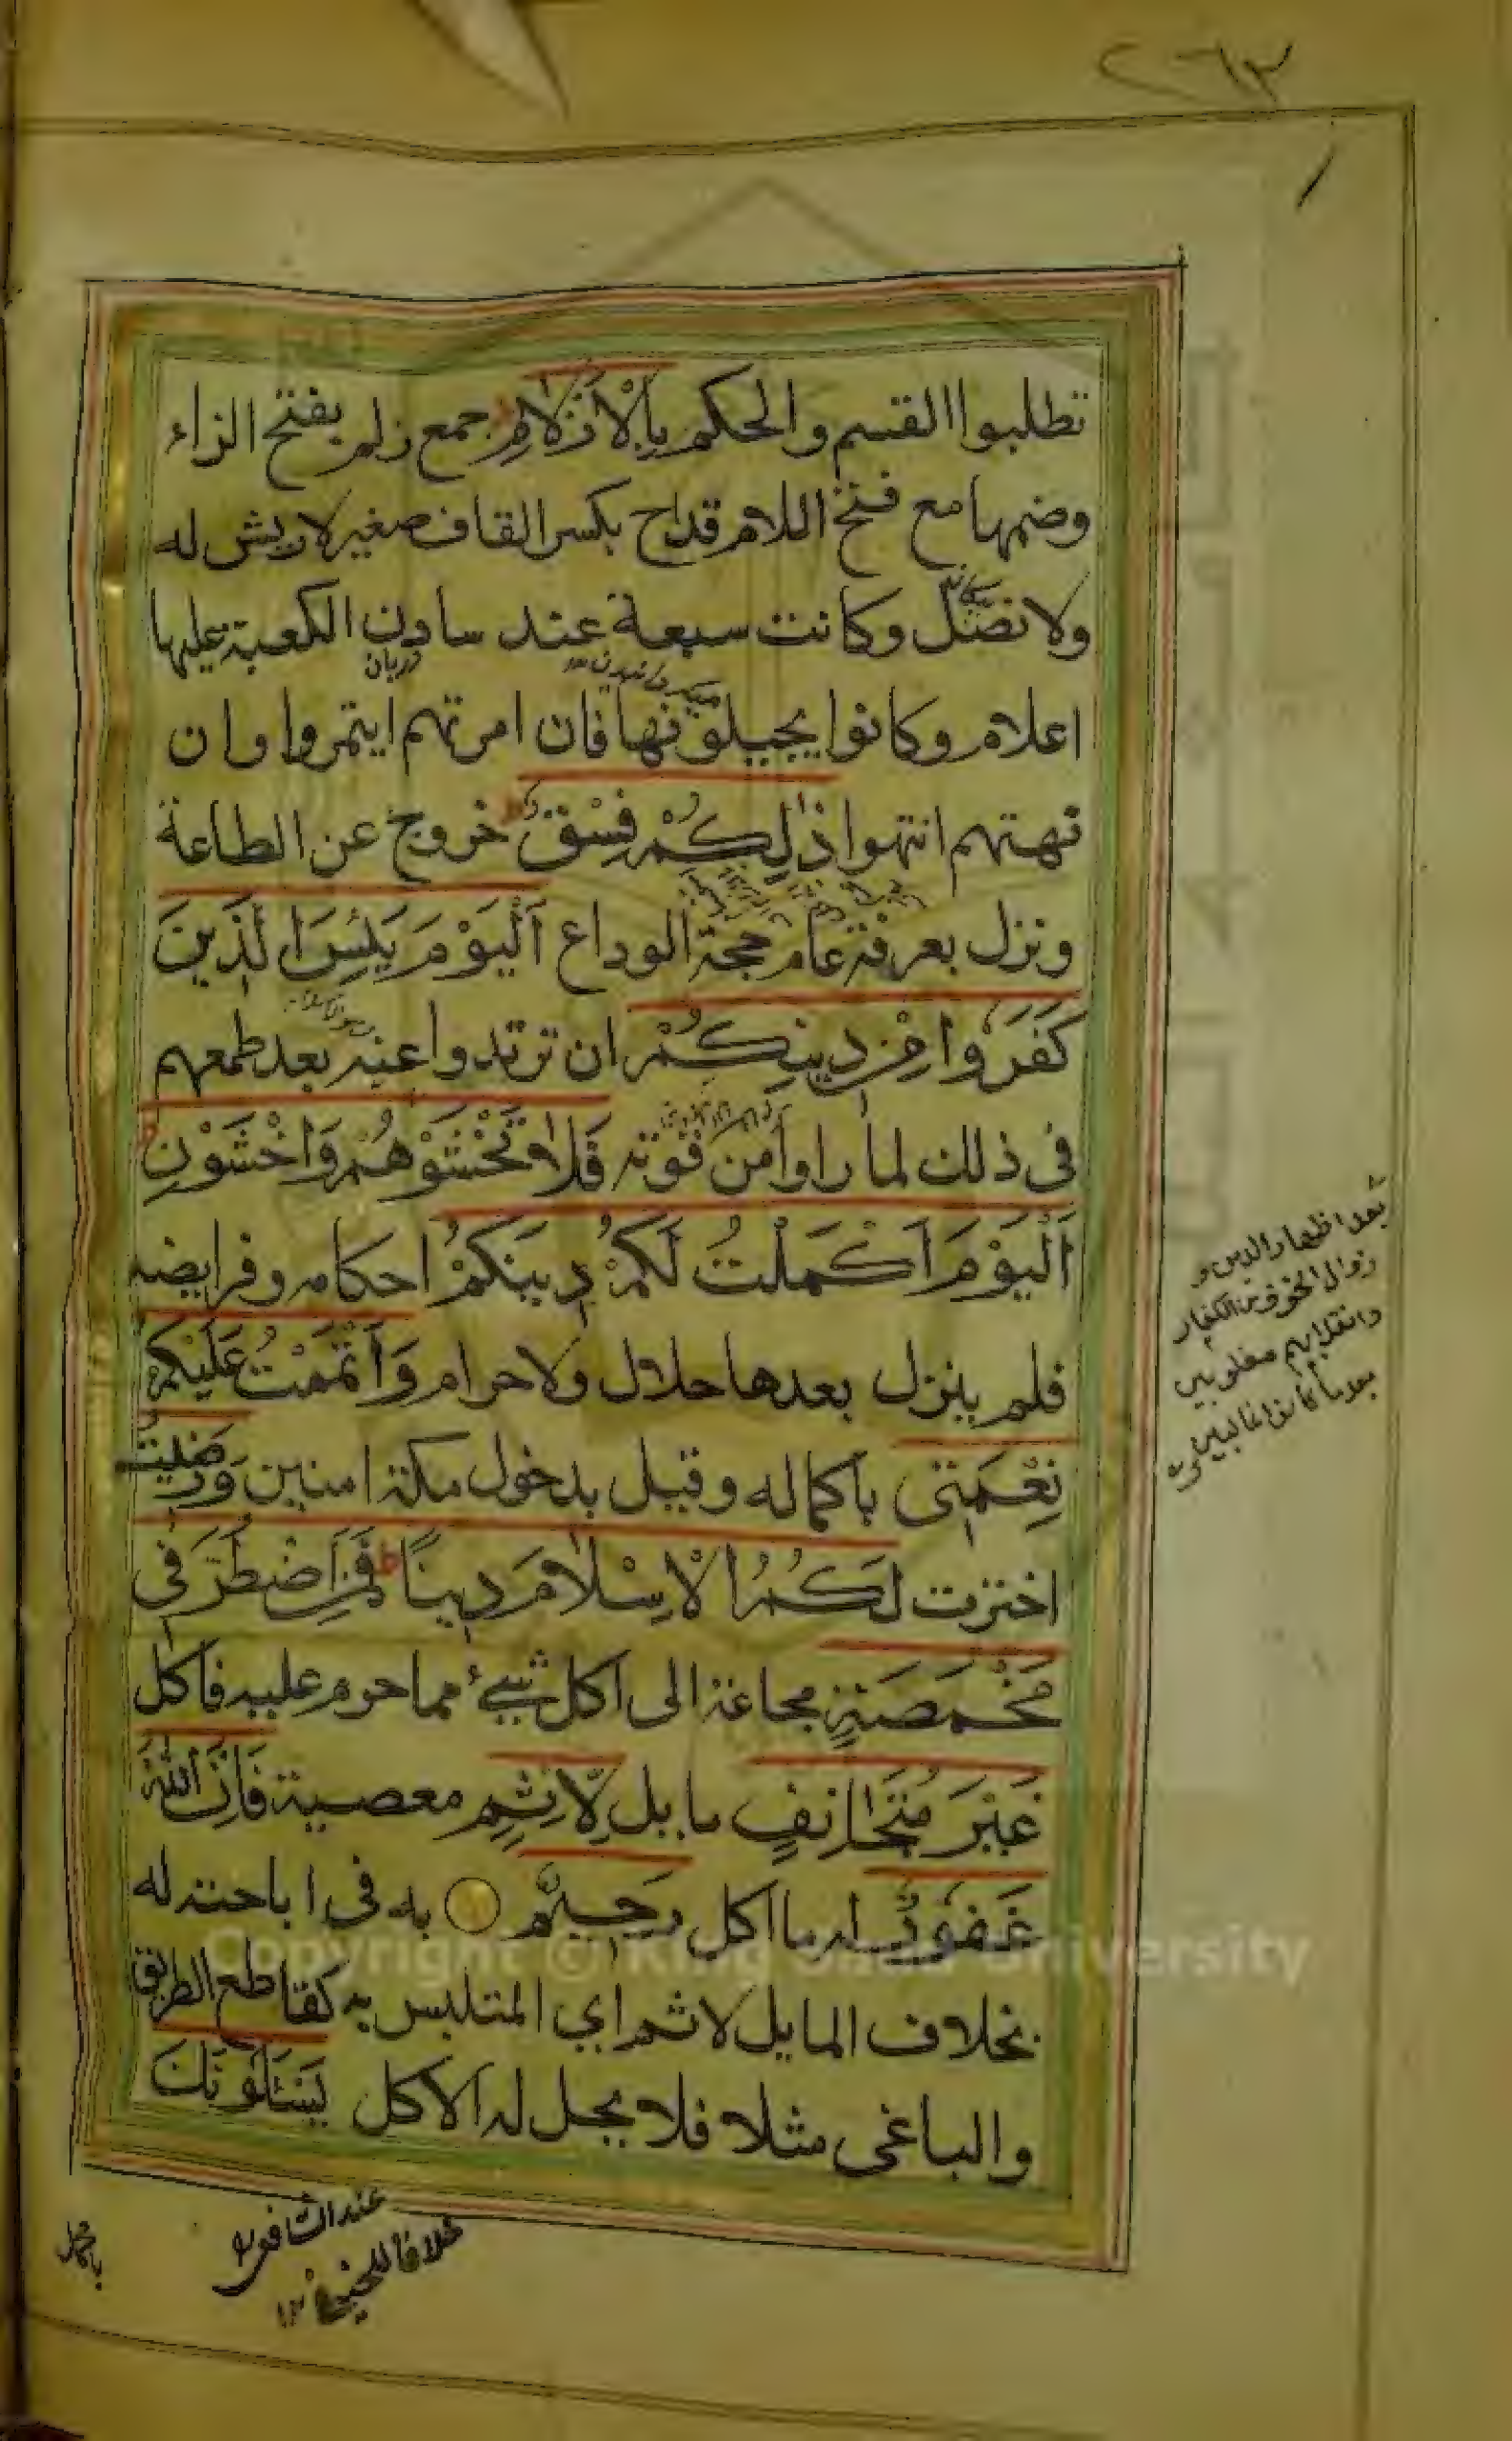 ٢٦٣
تطلبوا القسم والحكم بِالْاَزْلَامِ جمع زلم بفتح الزاء
وضمها مع فتح اللام قداح بكسر القاف صغير لا ريش له
ولا نصل وكانت سبعة عند سادن الكعبة عليها
دربان
اعلام وكانوا يجيلونها فان امرتهم ايتمروا وان
نهتهم انتهوا ذٰلِكُمْ فِسْقٌ ط خروج عن الطاعة
ونزل بعرفة عام حجة الوداع اَلْيَوْمَ يَئِسَ الَّذِينَ
كَفَرُوا مِنْ دِينِكُمْ ان ترتدوا عنه بعد طمعهم
فى ذلك لما راوا من قوته فَلَا تَخْشَوْهُمْ وَاخْشَوْنِ ط
اَلْيَوْمَ اَكْمَلْتُ لَكُمْ دِينَكُمْ احكامه وفرايضه
فلم ينزل بعدها حلال ولا حرام وَاَتْمَمْتُ عَلَيْكُمْ
نِعْمَتِى باكماله وقيل بدخول مكة امنين وَرَضِيتُ
اخترت لَكُمُ الْاِسْلَامَ دِينًا ط فَمَنِ اضْطُرَّ فِى
مَخْمَصَةٍ مجاعة الى اكل شيئ مما حرم عليه فاكل
غَيْرَ مُتَجَانِفٍ مايل لِّاِثْمٍ معصية فَاِنَّ اللّٰهَ
غَفُورٌ له ما اكل رَحِيمٌ به فى اباحته له
بخلاف المايل لاثم اي المتلبس به كقاطع الطريق
والباغى مثلا فلا يحل له الاكل يَسْئَلُونَكَ
بعد اظهار الدين و
زوال الخوف من الكفار
وانقلابهم مغلوبين
بعد ما كانوا غالبين
عند الشافعى
خلافا للحنيفة ١٢
Copyright © King Saud University